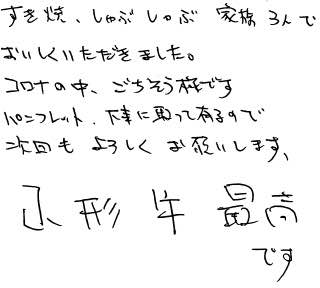 すき焼、しゃぶしゃぶ 家族3人で
おいしくいただきました。
コロナの中、ごちそう様です
パンフレット、大事に取って有るので
次回もよろしくお願いします、
山形牛 最高
です